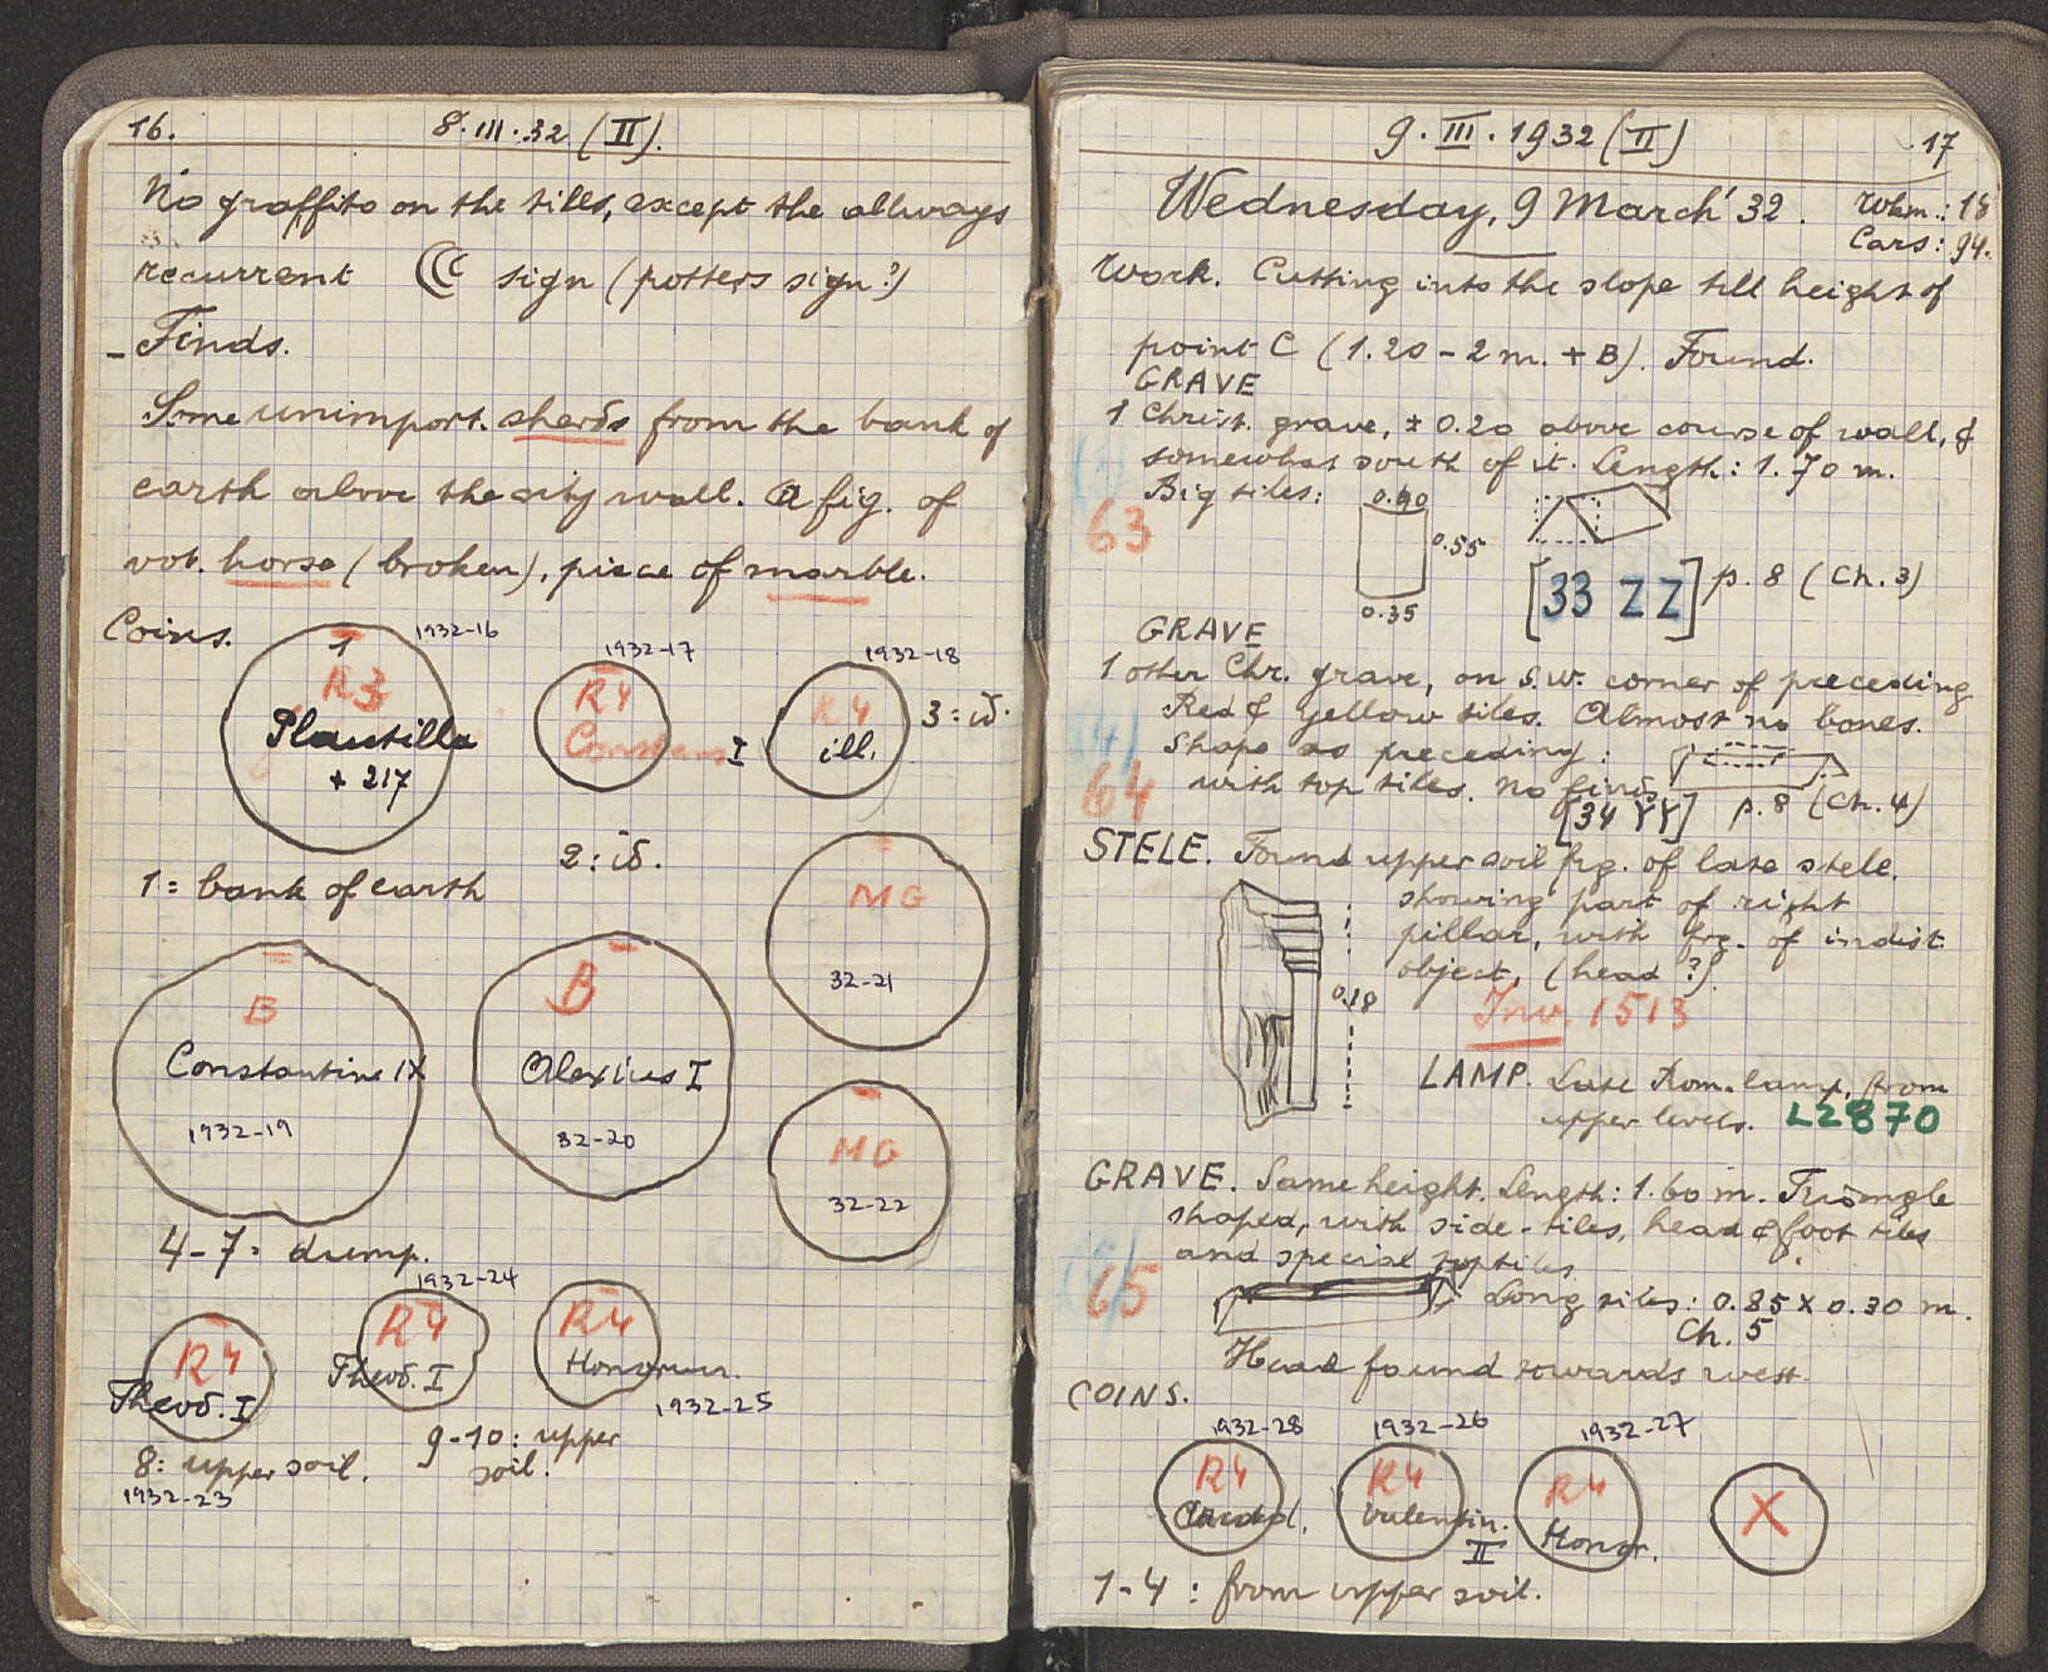 16.
8.III.32 (II).
No graffito on the tiles, except the allways
recurrent sign (potters sign?)
- Finds.
Some unimport. sherds from the bank of
earth above the city wall. A fig. of
vot. horse (broken), piece of marble.
Coins.
1
R3
Plautilla
+ 217
1932-16
1932-17
R4
Constans I
1932-18
R4
ill.
3: id.
2: id.
1= bank of earth
MG
32-21
B
Constantine IX
1932-19
B
Alexius I
32-20
MG
32-22
4-7= dump.
R4
Theod. I
8: upper soil.
1932-23
1932-24
R4
Theod. I
R4
1932-25
9-10: upper
soil.
9.III.1932 (II)
17
Wednesday, 9 March '32.
Wkm.: 18
Cars: 94.
Work. Cutting into the slope till height of
point C (1.20 - 2 m. + B). Found.
GRAVE
1 Christ. grave, ± 0.20 above course of wall, &
somewhat south of it. Length: 1.70 m.
Big tiles:
63
0.55
0.35
[33 ZZ] p. 8 (Ch. 3)
GRAVE
1 other Chr. grave, on S.W. corner of preceding
Red & yellow tiles. Almost no bones.
Shape as preceding:
64
with top tiles. No finds.
[34 YY] p. 8 (Ch. 4)
STELE. Found upper soil frg. of late stele.
showing part of right
pillar, with frg. of indist.
object, (head?).
0.18
Inv. 1513
LAMP. Late Rom. lamp, from
upper levels. L2870
GRAVE. Same height. Length: 1.60 m. Triangle
shaped, with side-tiles, head & foot tiles
and special toptiles
65
Long tiles: 0.85 x 0.30 m.
Ch. 5
Head found towards west.
COINS.
1932-28
R4
1932-26
R4
Valentin.
II
1932-27
R4
Honor.
X
1-4: from upper soil.